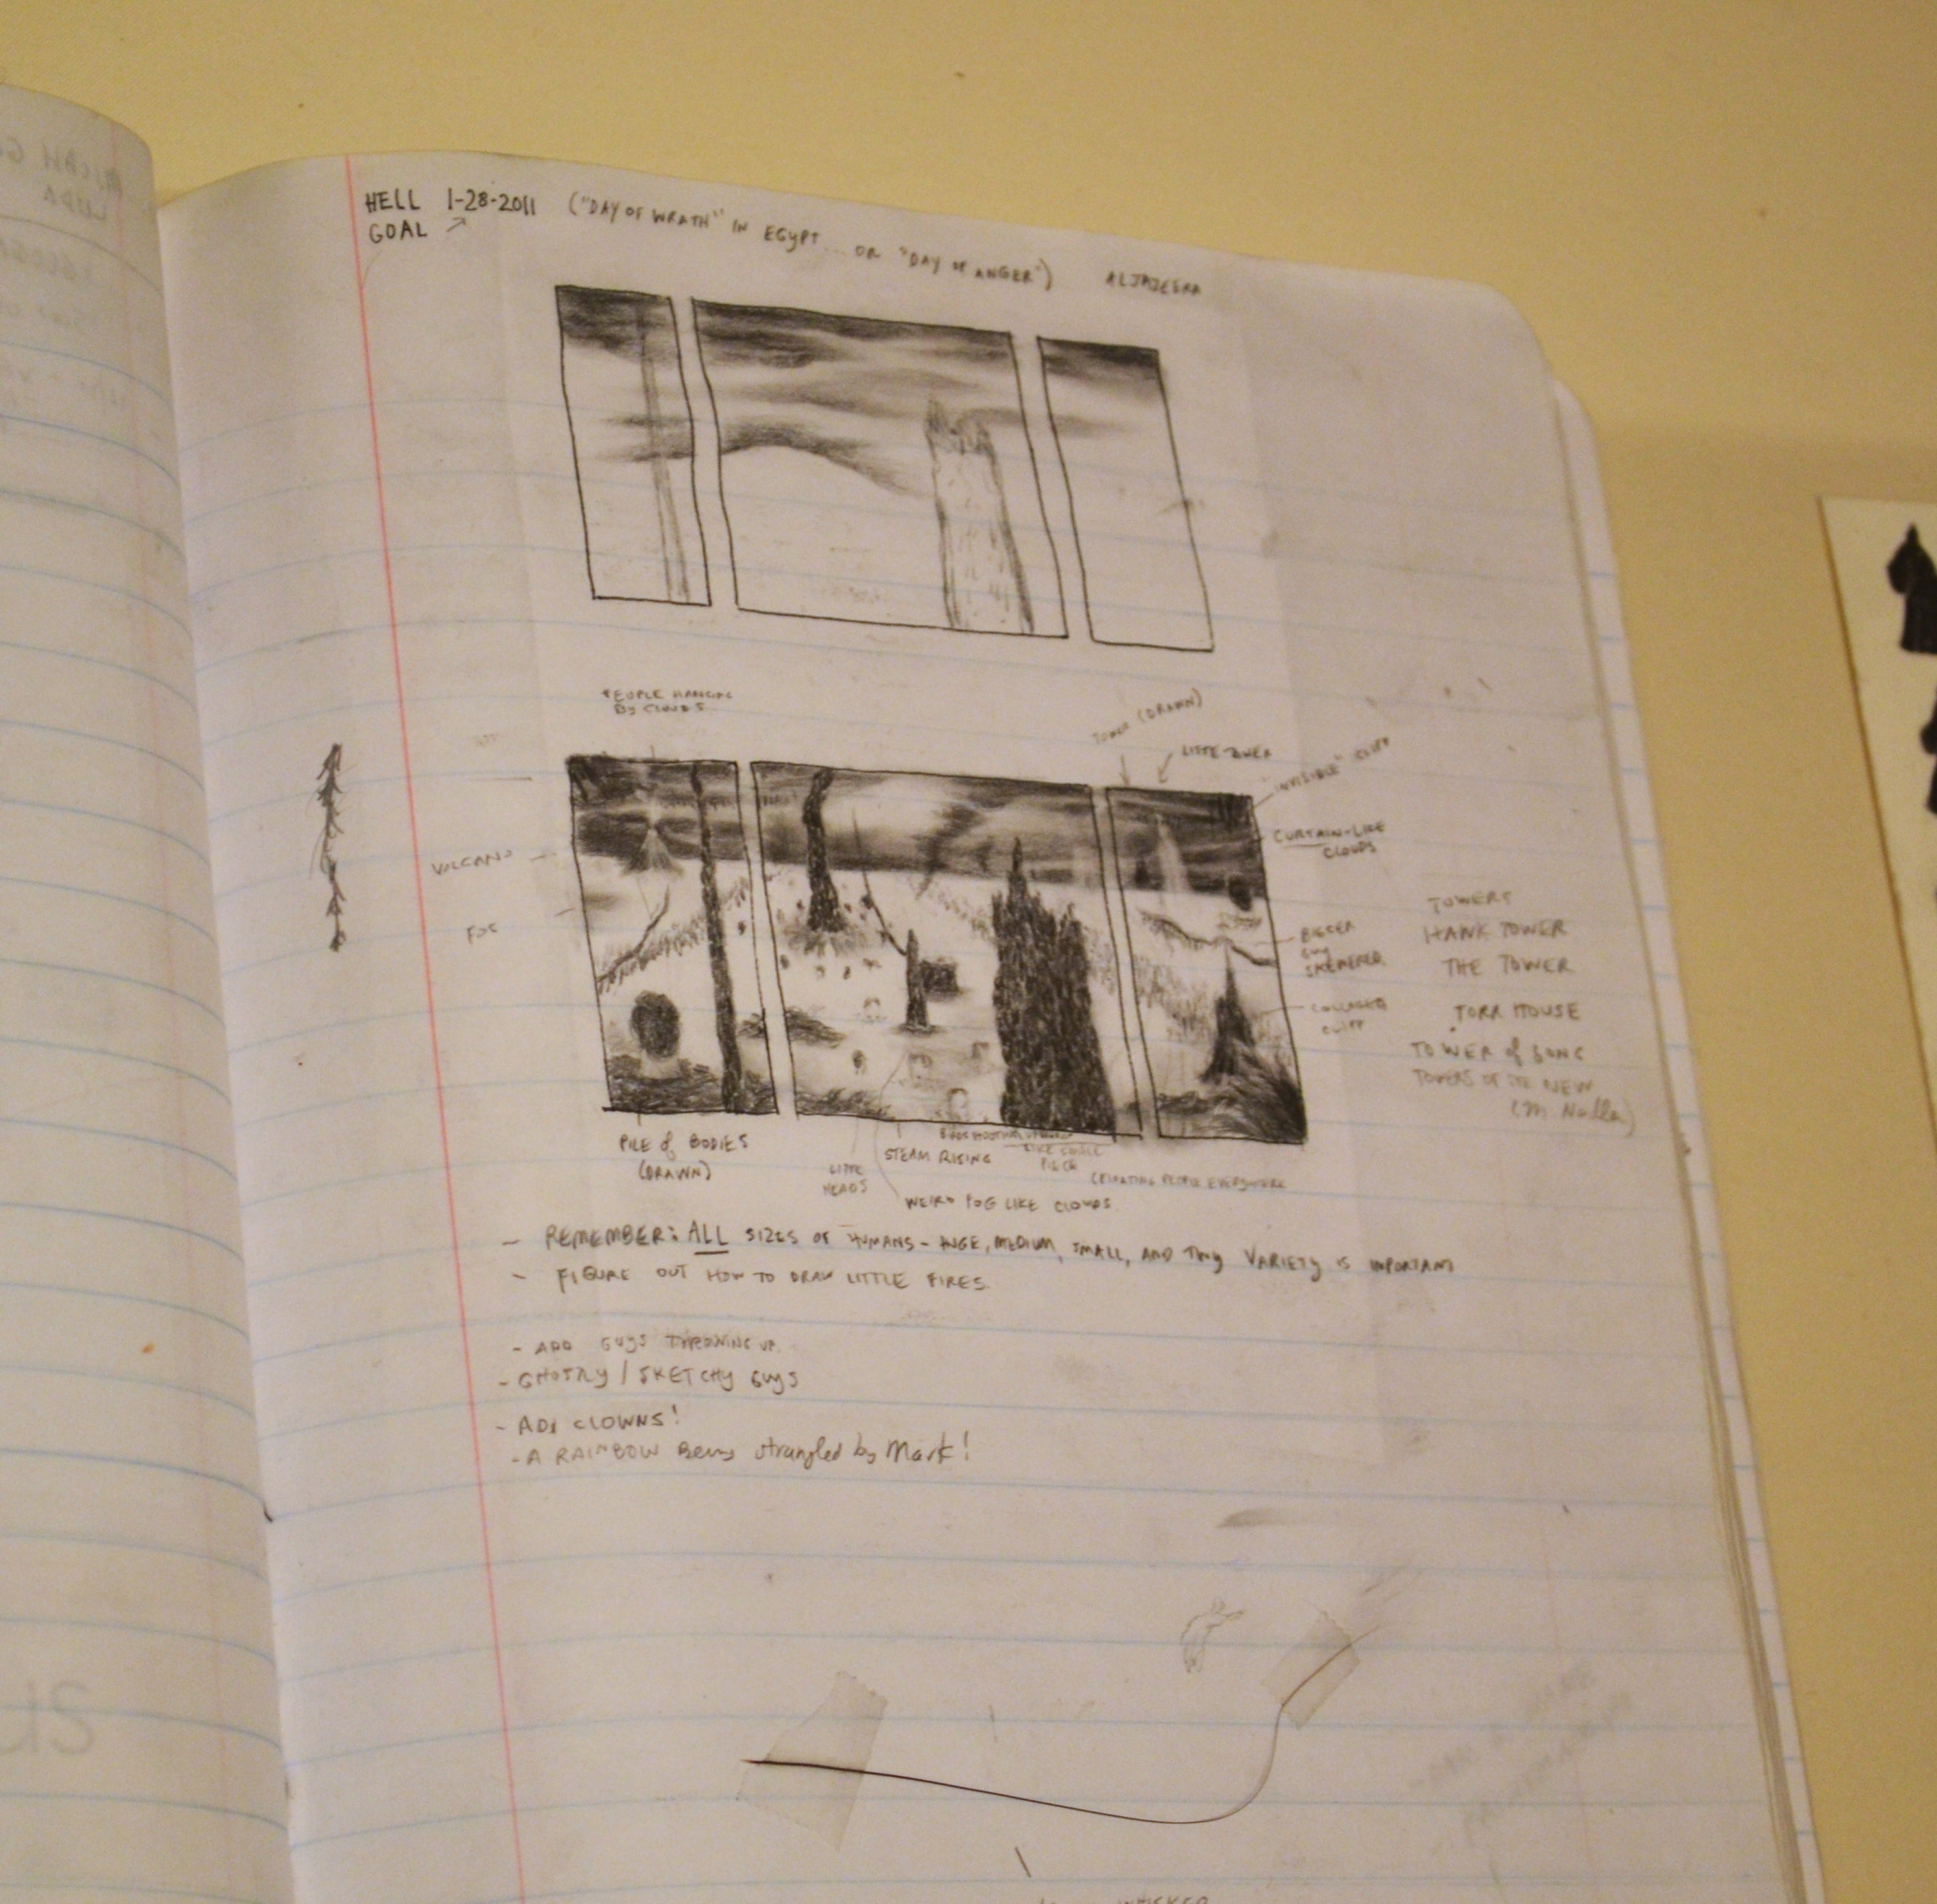 HELL 1-28-2011 ("DAY OF WRATH" IN EGYPT... OR "DAY OF ANGER") ALJAZEERA
GOAL
PEOPLE HANGING
BY CLOUDS
TOWER (DRAWN)
LITTLE TOWER
"INVISIBLE" CLIFF
CURTAIN-LIKE
CLOUDS
VOLCANO
FOG
BIGGER
GUY
SKEWERED
COLLAGED
CLIFF
TOWERS
HANK TOWER
THE TOWER
TORR HOUSE
TOWER of SONG
TOWERS OF THE NEW
(M.
PILE of BODIES
(DRAWN)
LITTLE
HEADS
STEAM RISING
LIKE SINGLE
PIECE
FLOATING PEOPLE EVERYWHERE
WEIRD FOG LIKE CLOUDS
- REMEMBER: ALL SIZES OF HUMANS - HUGE, MEDIUM, SMALL, AND TINY VARIETY IS IMPORTANT
- FIGURE OUT HOW TO DRAW LITTLE FIRES.
- ADD GUYS THROWING UP.
- GHOSTLY / SKETCHY GUYS
- ADD CLOWNS!
- A RAINBOW Being strangled by Mark!
WHISKER